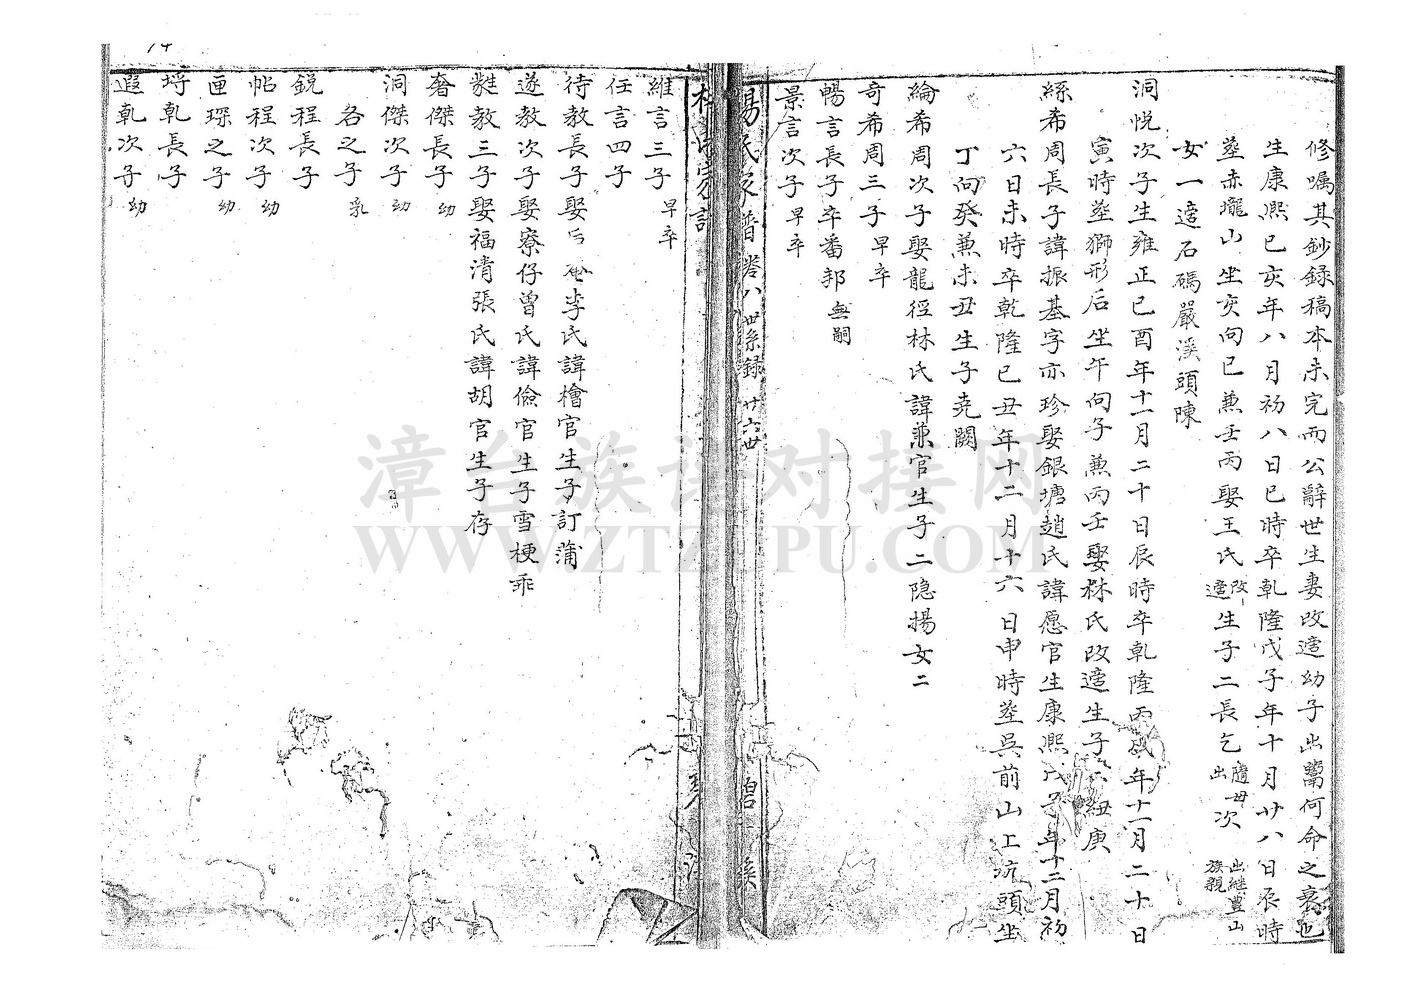 修嘱其鈔録稿本未完而公辭世生妻改適幼子出鬻何命之衰也
生康熙己亥年八月初八日巳時卒乹隆戊子年十月廿八日辰時
塟赤壠山坐亥向巳兼壬丙娶王氏改適生子二長乞隨毋出次出継豊山族親
女一適石碼嚴溪頭陳
洞悦次子生雍正己酉年十一月二十日辰時卒乹隆丙戌年十一月二十日
寅時塟獅形后坐午向子兼丙壬娶林氏改適生子六紐庚
縣希周長子諱振基字亦珍娶銀塘趙氏諱愿官生康熙戊子年十二月初
六日未時卒乾隆己丑年十二月十六日申時塟吳前山上坑頭坐
丁向癸兼未丑生子堯闕
綸希周次子娶龍徑林氏諱兼官生子二隐揚女二
奇希周三子早卒
暢言長子卒番邦無嗣
景言次子早卒
楊氏家譜 卷八 世系録 廿六世 碧溪
維言三子早卒
任言四子
待教長子娶后 李氏諱檜官生子訂蒲
遂教次子娶寮仔曾氏諱儉官生子雪梗乖
甤教三子娶福清張氏諱胡官生子存
奢傑長子幼
洞傑次子幼
各之子乳
鋭程長子
帖程次子幼
匣琛之子幼
埒乹長子
遐乹次子幼
漳台族谱对接网
WWW.ZTZUPU.COM